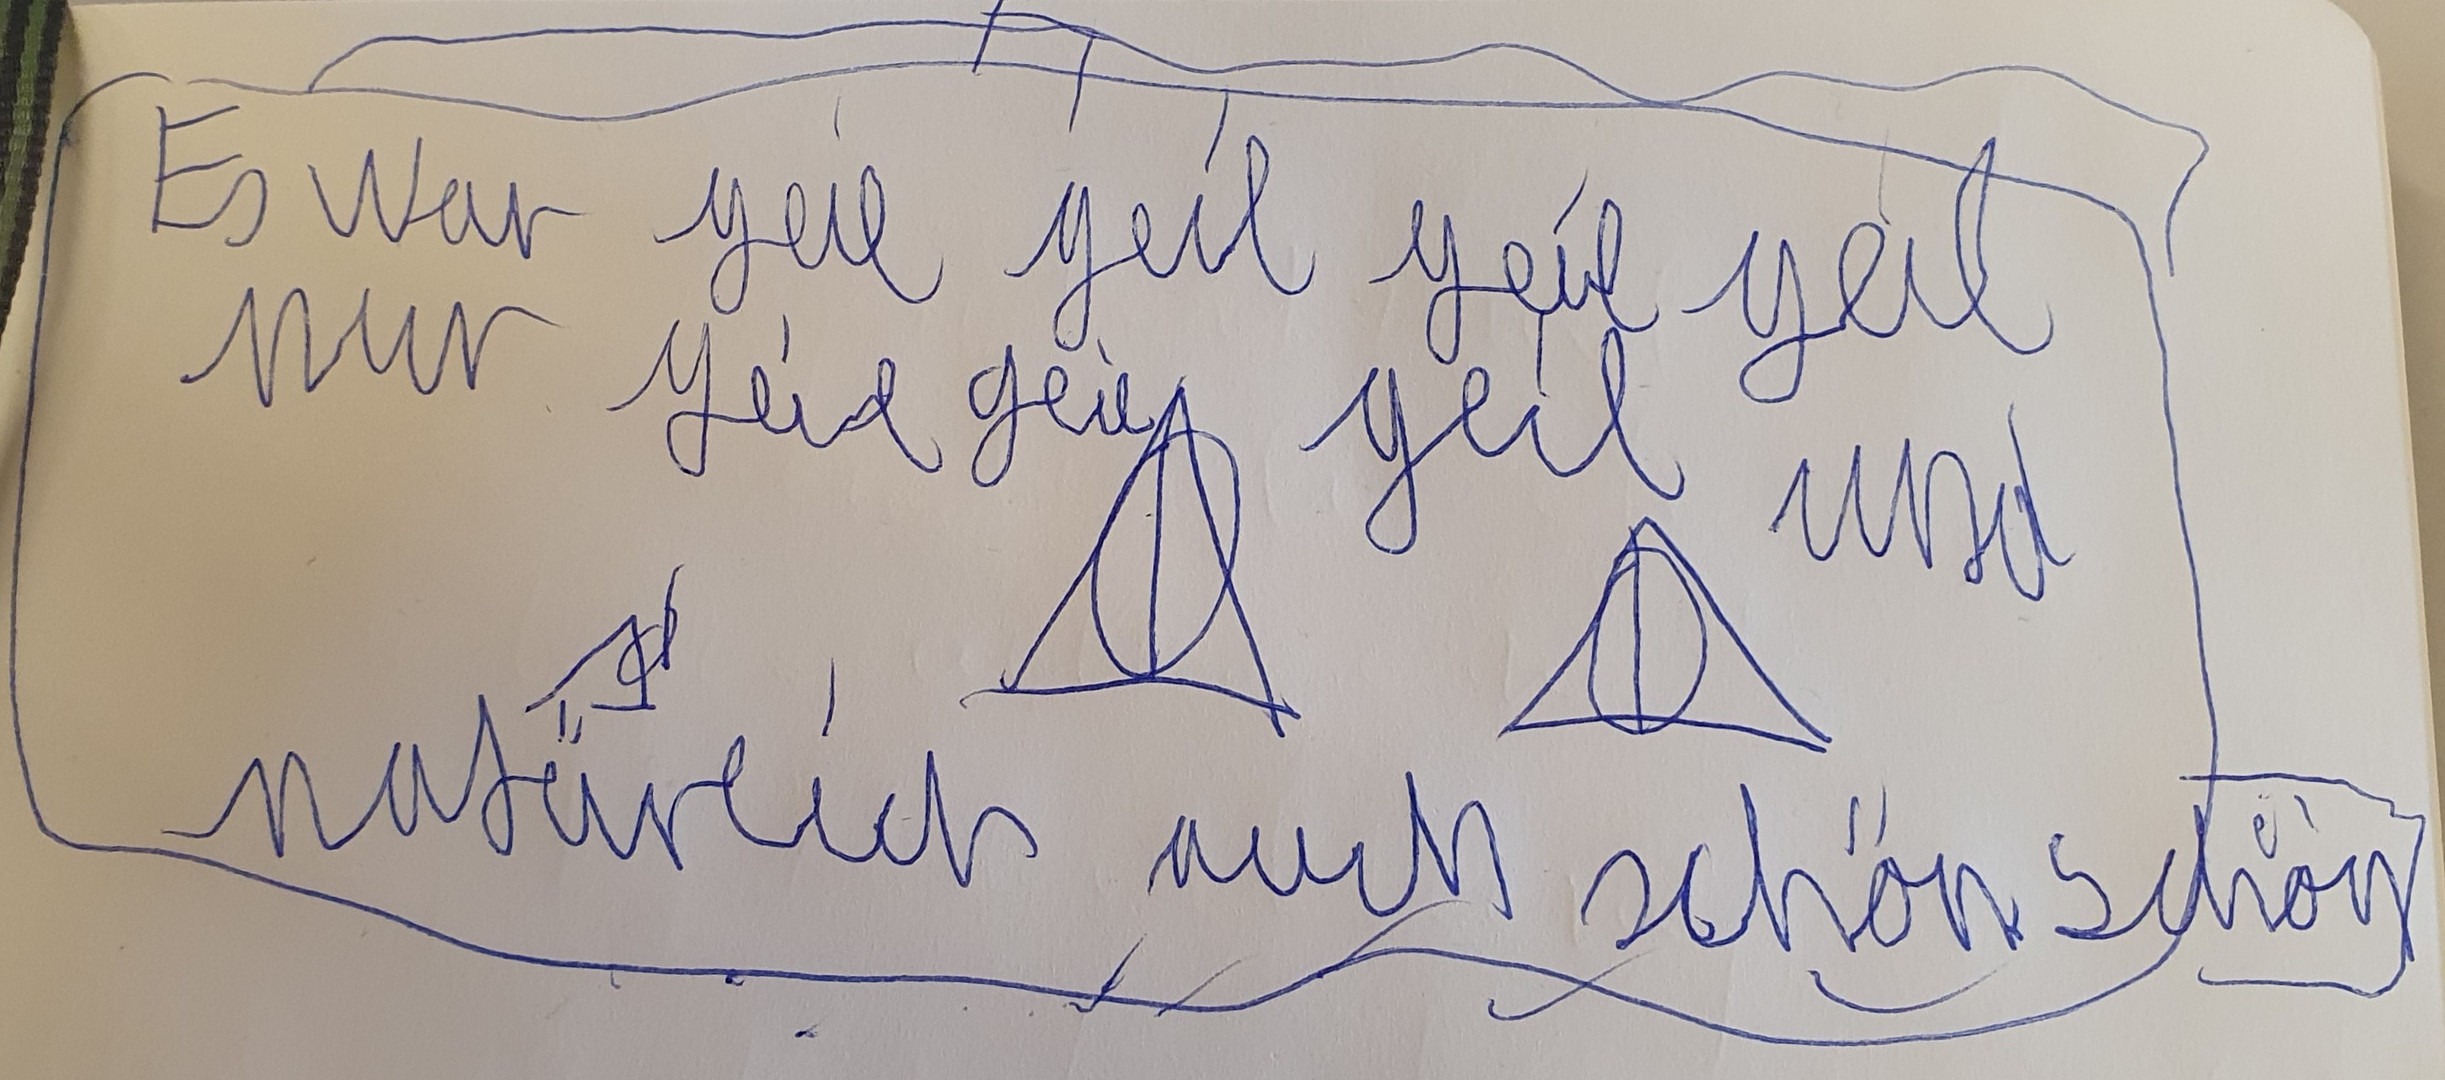 Es war geil geil geil geil
nur geil geil geil und
natürlich auch schön schön